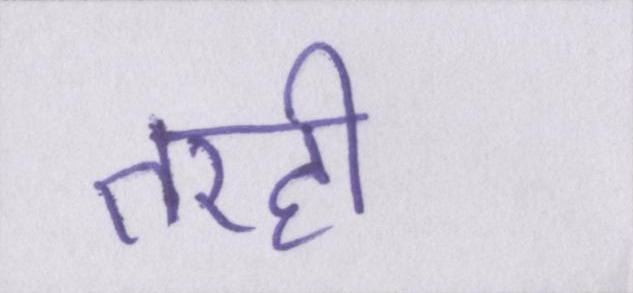 तरही